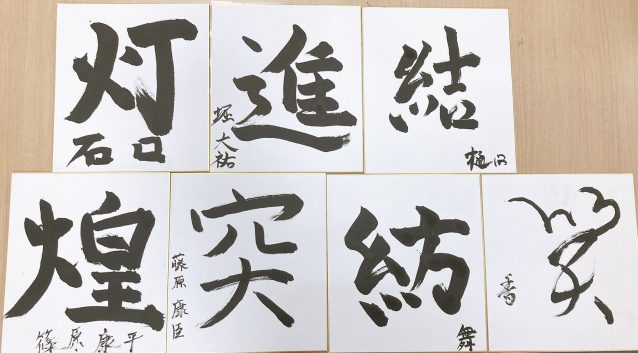 灯
石口
進
堀大祐
結
樋口
煌
篠原康平
突
藤原康臣
紡
舞
笑
香